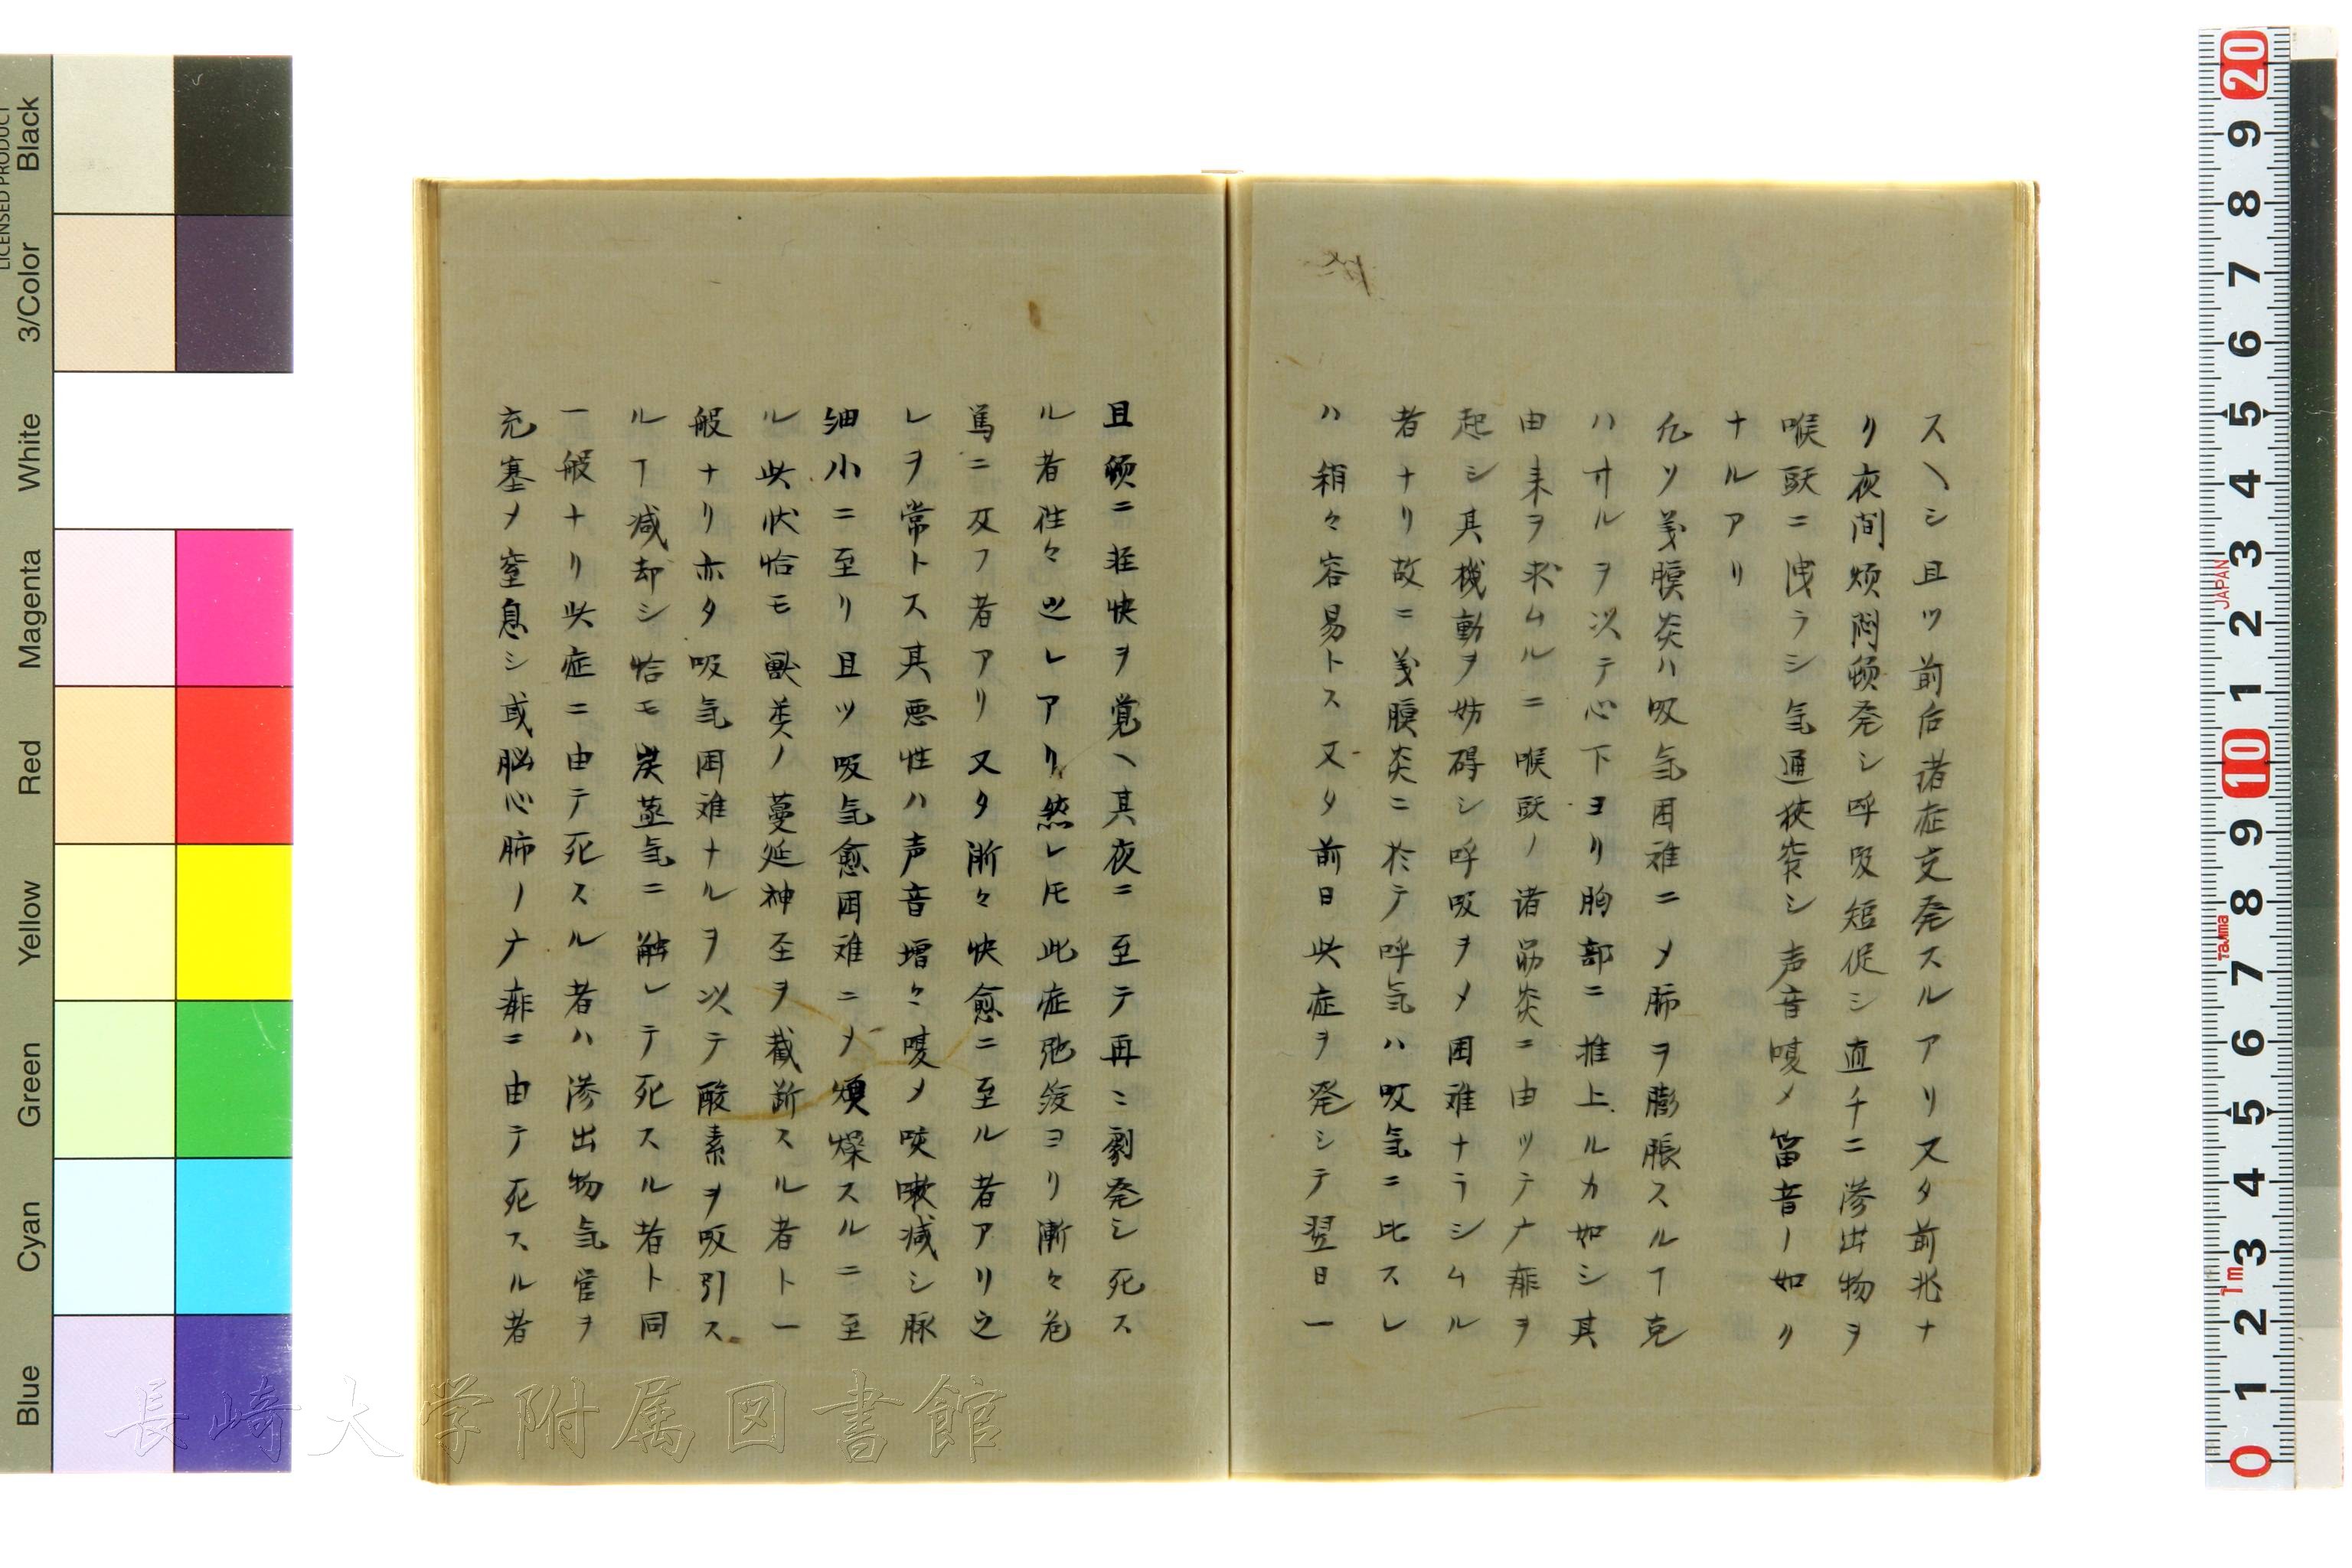 スヽシ且ツ前后諸症交発スルアリ又タ前兆ナ
リ夜間煩悶頓発シ呼吸短促シ直チニ滲出物ヲ
喉頭ニ洩ラシ気通狭窄シ声音嗄メ笛音ノ如リ
ナルアリ
凡ソ義膜炎ハ吸気困難ニメ肺ヲ膨脹スルヿ克
ハサルヲ以テ心下ヨリ胸部ニ推上ルカ如シ其
由来ヲ求ムルニ喉頭ノ諸筋炎ニ由ツテナ痱ヲ
起シ其機動ヲ妨碍シ呼吸ヲメ困難ナラシムル
者ナリ故ニ義膜炎ニ於テ呼気ハ吸気ニ比スレ
ハ稍々容易トス又タ前日此症ヲ発シテ翌日一
且頓ニ荘快ヲ覚ヘ其夜ニ至テ再ニ劇発シ死ス
ル者徃々之レアリ然レ𪜈此症弛緩ヨリ漸々危
篤ニ及フ者アリ又タ漸々快愈ニ至ル者アリ之
レヲ常トス其悪性ハ声音増々嗄メ咳嗽減シ脉
細小ニ至リ且ツ吸気愈困難ニメ煩燥スルニ至
ル此状恰モ獣類ノ蔓延神至ヲ截断スル者ト一
般ナリ亦タ吸気困難ナルヲ以テ酸素ヲ吸引ス
ルヿ減却シ恰モ炭蒸気ニ触レテ死スル者ト同
一般ナリ此症ニ由テ死スル者ハ滲出物気管ヲ
充塞メ窒息シ或脳心肺ノナ痱ニ由テ死スル者
長崎大学附属図書館
Black
3/Color
White
Magenta
Red
Yellow
Green
Cyan
Blue
LICENSED PRODUCT
20
9
8
7
6
5
4
3
2
1
10
9
8
7
6
5
4
3
2
1
0
JAPAN
Tajima
1m